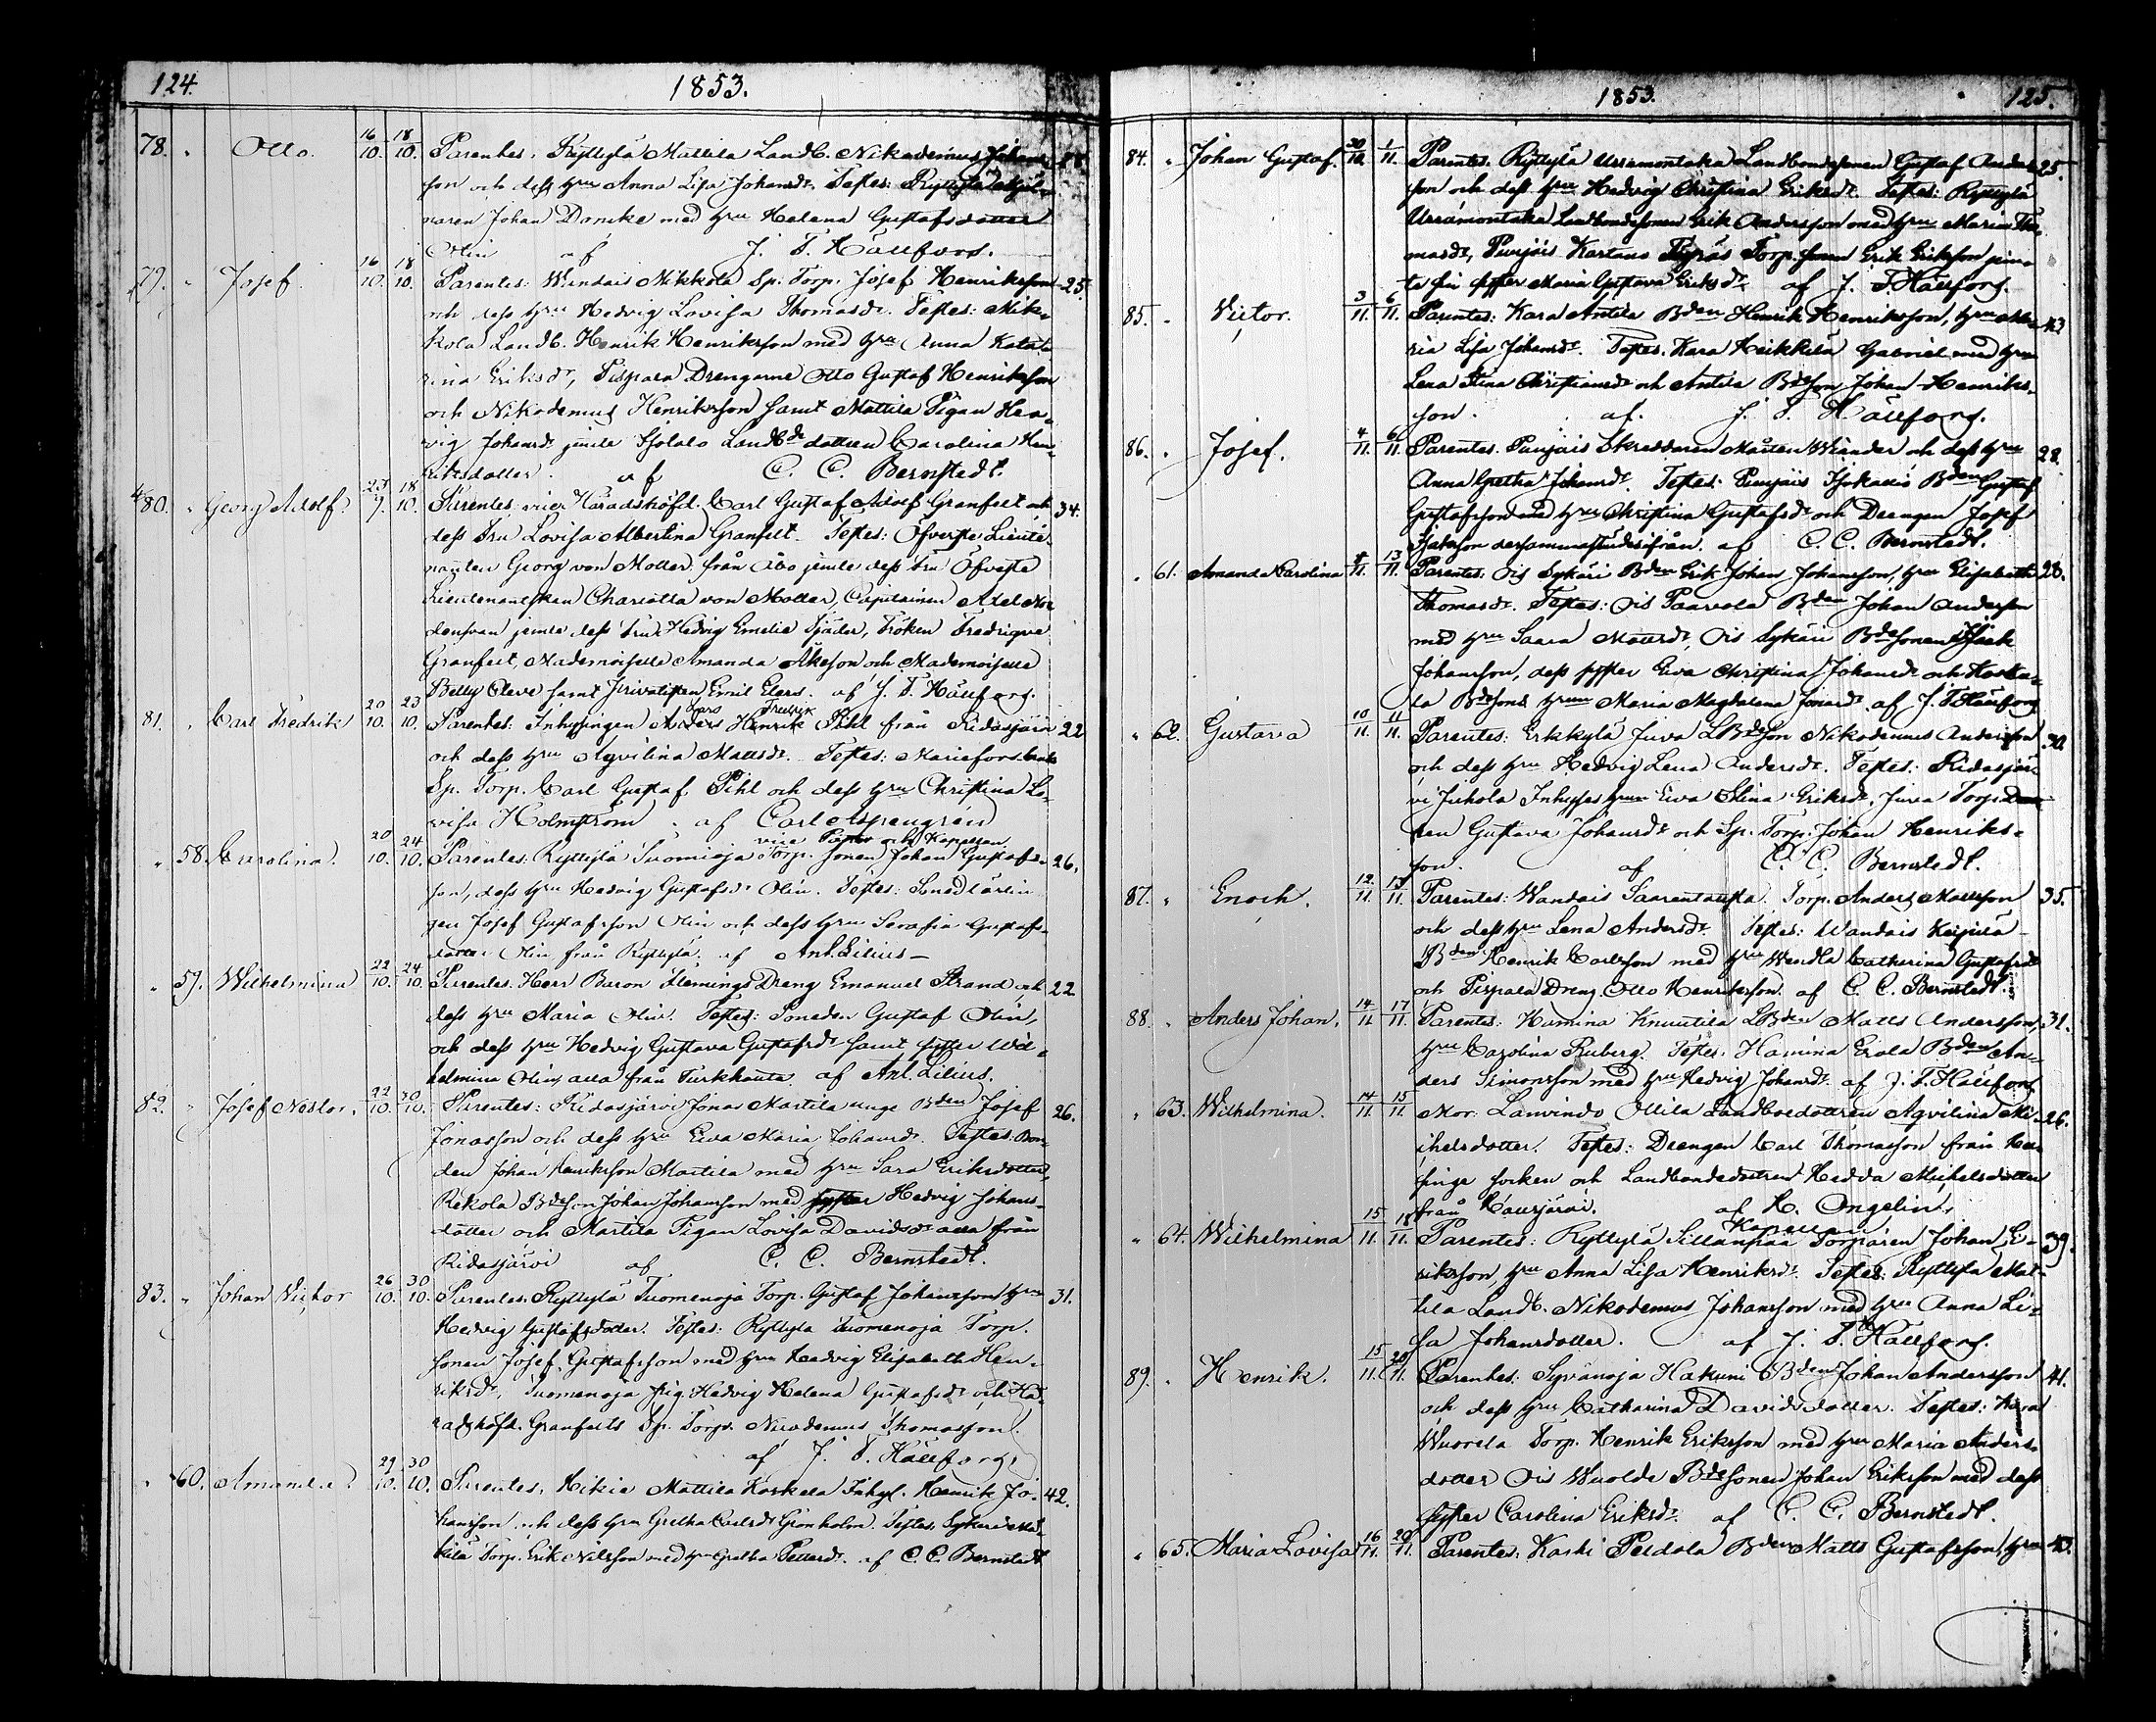 124. 1853.
78. " Otto. 16/10. 18/10. Parentes. Ryttylä Mattila Landb. Nikodemus Johans-
son och dess hru Anna Lisa Johansdr. Testes: Ryttylä Mjöl-
naren Johan Doncke med hru Helena Gustafsdotter
Olin af J. T. Hällfors.
79. " Josef. 16/10. 18/10. Parentes: Wandais Nikkola Sp. Torp. Josef Henriksson 25.
och dess hru Hedvig Lovisa Thomasdr. Testes: Nik-
kola Landb. Henrik Henriksson med hru Anna Kata-
rina Eriksdr, Pispala Drengarne Otto Gustaf Henriksson
och Nikodemus Henriksson samt Mattila Pigan Hed-
vig Johansdr jemte Landbde dottren Carolina Hen-
riksdotter. af C. C. Bernstedt.
80. " Georg Adolf 23/9. 18/10. Parentes: vice Häradshöfd. Carl Gustaf Adolf Granfelt och 34.
dess Fru Lovisa Albertina Granfelt. Testes: Öfverste Lieute-
nanten Georg von Moller från Åbo jemte dess Fru Öfverste
Lieutenantskan Charlotta von Moller, Capitainen Axel Nor-
densvan jemte dess Fru Hedvig Emelie Tjäder, Fröken Fredrique
Granfelt, Mademoiselle Amanda Åkeson och Mademoiselle
Betty Cleve samt Privatisten Emil Elers. af J. T. Hällfors.
81. " Carl Fredrik 20/10. 23/10. Parentes: Inhysingen Anders Henrik Pihl från Ridasjärvi 22
Lars Fredrik
och dess hru Aqvilina Mattsdr. Testes: Mariefors bruks
Sp. Torp. Carl Gustaf Pihl och dess hru Christina Lo-
visa Holmström. af Carl Aspengrén
vice Pastor och Kapellan
" 58. Carolina. 20/10. 24/10. Parentes: Ryttylä Tuomioja Torp. sonen Johan Gustafs- 26.
son, dess hru Hedvig Gustafsdr Olin. Testes: Smedlärlin-
gen Josef Gustafsson Olin och dess hru Serafia Gustafs-
dotter Olin från Ryttylä. af Ant. Lilius
" 59. Wilhelmina 22/10. 24/10. Parentes: Herr Baron Flemings Dreng Emanuel Strand och 22
dess hru Maria Olin. Testes: Smeden Gustaf Olin,
och dess hru Hedvig Gustava Gustafsdr samt syster Wil-
helmina Olin, alla från Turkhauta. af Ant. Lilius.
82. " Josef Nestor. 22/10. 30/10. Parentes: Ridasjärvi Jonas Martila unge Bden Josef 26.
Jonasson och dess hru Ewa Maria Johansdr. Testes: Bon-
den Johan Henriksson Martila med hru Sara Eriksdotter,
Rekola Bdeson Johan Johansson med syster Hedvig Johans-
dotter och Martila Pigan Lovisa Davidsdr alla från
Ridasjärvi af C. C. Bernstedt.
83. " Johan Victor 26/10. 30/10. Parentes. Ryttylä Tuomenoja Torp. Gustaf Johansson hru 31.
Hedvig Gustafsdotter. Testes: Ryttylä Tuomenoja Torp.
sonen Josef Gustafsson med hru Hedvig Elisabeth Hen-
riksdr, Tuomenoja pig. Hedvig Helena Gustafsdr och Hä-
radshöfd. Granfelts Sp. Torp. Nicodemus Thomasson.
af J. T. Hällfors.
" 60. Amanda 29/10. 30/10. Parentes. Hikiä Mattila Koskela Inhys. Henrik Jo- 42.
hansson och dess hru Gretha Carlsdr Grönholm. Testes:
Torp. Erik Nilsson med hru Gretha Pettersdr. af C. C. Bernstedt
1853. 125.
84. " Johan Gustaf. 30/10. 1/11. Parentes. Ryttylä Uusamontaka Landbondesonen Gustaf Anders- 25.
son och dess hru Hedvig Christina Eriksdr. Testes: Ryttylä
Uusamontaka Landbondesonen Erik Andersson med hru Maria Tho-
masdr, Punjois Kartano Torp. sonen Erik Eriksson jem-
te sin syster Maria Gustava Eriksdr. af J. T. Hällfors.
85. " Victor. 3/11. 6/11. Parentes: Kara Antila Bden Henrik Henriksson, hru Ma- 43
ria Lisa Johansdr. Testes. Kara Heikkilä Gabriel med hru
Lena Stina Christiansdr och Antila Bdeson Johan Henriks-
son. af. J. T. Hällfors.
86. " Josef. 4/11. 6/11. Parentes. Punjois Skreddaren Mårten Wiander och dess hru 28.
Anna Gretha Johansdr. Testes: Punjois Bden Gustaf
Gustafsson med hru Christina Gustafsdr och Drengen Josef
Isaksson dersammastädes ifrån. af C. C. Bernstedt.
" 61. Amanda Karolina 11. 13/11. Parentes: Ois Sykäri Bden Erik Johan Johansson, hru Elisabeth 28.
Thomasdr. Testes: Ois Paavola Bden Johan Andersson
med hru Saara Mattsdr, Ois Sykäri Bdesonen Isak
Johansson, dess syster Eva Christina Johansdr och Koske-
la Bdesons hru Maria Magdalena Jonasdr. af J. T. Hällfors
" 62. Gustava 10/11. 11/11. Parentes: Erkkylä Juva LBdeson Nikodemus Andersson 30.
och dess hru Hedvig Lena Andersdr. Testes: Ridasjär-
vi Jukola Inhyses hru Ewa Stina Eriksdr, Juva Torp.
Gustava Johansdr och Sp. Torp. Johan Henriks-
son. af C. C. Bernstedt.
87. " Enoch. 12/11. 13/11. Parentes: Wandais Saarentausta Torp. Anders Mattsson 35.
och dess hru Lena Andersdr. Testes: Wandais
Bden Henrik Carlsson med hru Wendla Catharina Gustafsdr
och Pispala Dreng Otto Henriksson. af C. C. Bernstedt.
88. " Anders Johan. 14/11. 17/11. Parentes: Hamina Knuutila LBden Matts Andersson, 31.
hru Carolina Ruberg. Testes. Hamina Erola Bden An-
ders Simonsson med hru Hedvig Johansdr. af J. T. Hällfors
" 63. Wilhelmina. 14/11. 15/11. Mor: Lanvindo Ollila Landboedottren Aqvilina Mi- 26.
chelsdotter. Testes: Drengen Carl Thomasson från
socken och Landbondedottren Hedda Michelsdotter
från Kaurjärvi. af K. Ongelin,
Kapellan
" 64. Wilhelmina 15/11. 18/11. Parentes: Ryttylä Sillanpää Torparen Johan E- 39.
riksson, hru Anna Lisa Henriksdr. Testes: Ryttylä Mat-
tila Landb. Nikodemus Johansson med hru Anna Li-
sa Johansdotter. af J. T. Hällfors.
89. " Henrik. 15/11. 20/11. Parentes: Syvänoja Hakuni Bden Johan Andersson 41.
och dess hru Catharina Davidsdotter. Testes: Kara
Wuorela Torp. Henrik Eriksson med hru Maria Anders-
dotter Ois Wuolde Bdesonen Johan Eriksson med dess
syster Carolina Eriksdr. af C. C. Bernstedt.
" 65. Maria Lovisa 16/11. 20/11. Parentes: Karhi Perdola Bden Matts Gustafsson, hru